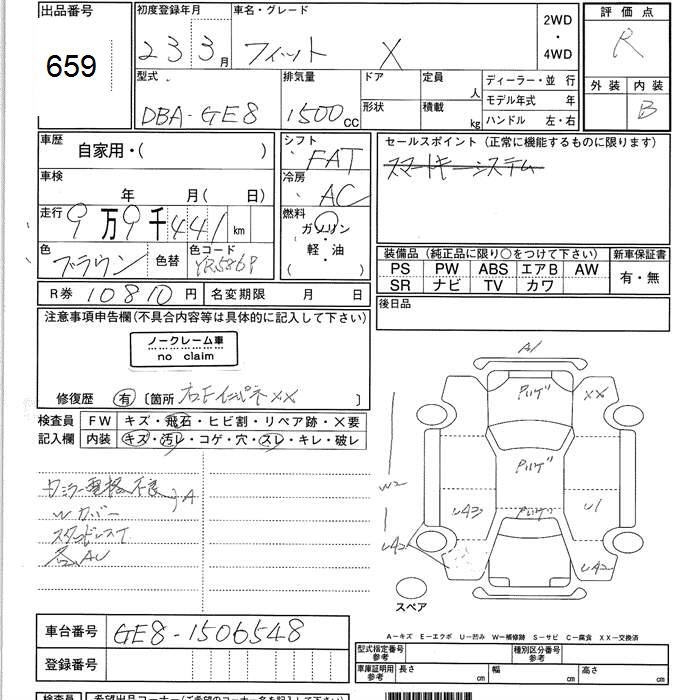 出品番号
659
初度登録年月
23 3月
車名・グレード
フィット X
2WD
・
4WD
評価点
R
外装 内装
B
型式
DBA-GE8
排気量
1500cc
ドア
形状
定員 人
積載 kg
ディーラー・並 行
モデル年式 年
ハンドル 左・右
車歴
自家用・( )
車検
年 月( 日)
走行
9万9千441km
色
ブラウン
色替
色コード
YR586P
シフト
FAT
冷房
AC
燃料
ガソリン
軽・油
( )
セールスポイント(正常に機能するものに限ります)
スマートキーシステム
装備品(純正品に限り○をつけて下さい)
PS PW ABS エアB AW
SR ナビ TV カワ
新車保証書
有・無
後日品
R券 10810円
名変期限 月 日
注意事項申告欄(不具合内容等は具体的に記入して下さい)
ノークレーム車
no claim
修復歴 有 〔箇所 右Fインパネ××〕
検査員
記入欄
FW キズ・飛石・ヒビ割・リペア跡・×要
内装 キズ・汚レ・コゲ・穴・スレ・キレ・破レ
ウミラー電格不良
Wカバー
A
A1
XX
W2
U43
U1
U42
U42
スペア
A−キズ E−エクボ U−凹み W−補修跡 S−サビ C−腐食 XX−交換済
車台番号 GE8-1506548
登録番号
型式指定番号
参考
種別区分番号
参考
車庫証明用
参考
長さ cm 幅 cm 高さ cm
検査員
希望出品コーナー(ご希望のコーナー名を記入して下さい)